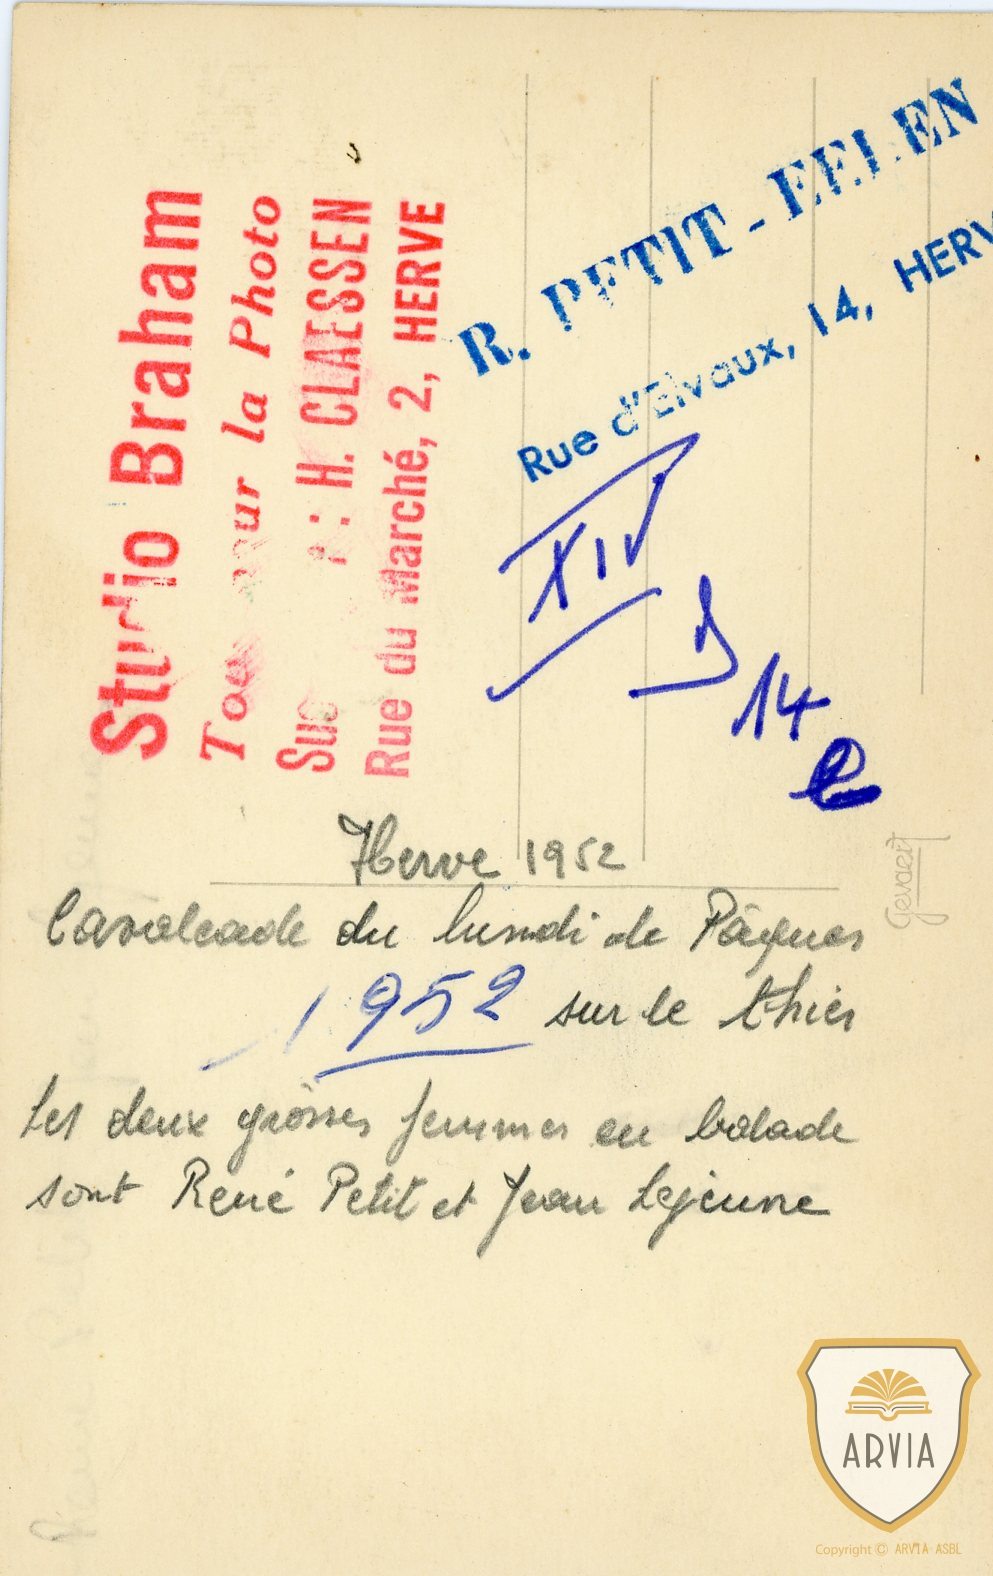 Studio Braham
Tou pour la Photo
Suc : H. CLAESSEN
Rue du Marché, 2, HERVE
R. PETIT - EELEN
Rue d'Elvaux, 14, HERV
XIV
14
Herve 1952
Cavalcade du lundi de Pâques
1952 sur le thier
Les deux grosses femmes en balade
sont René Petit et Jean Lejeune
Gevaert
ARVIA
Copyright © ARVIA ASBL